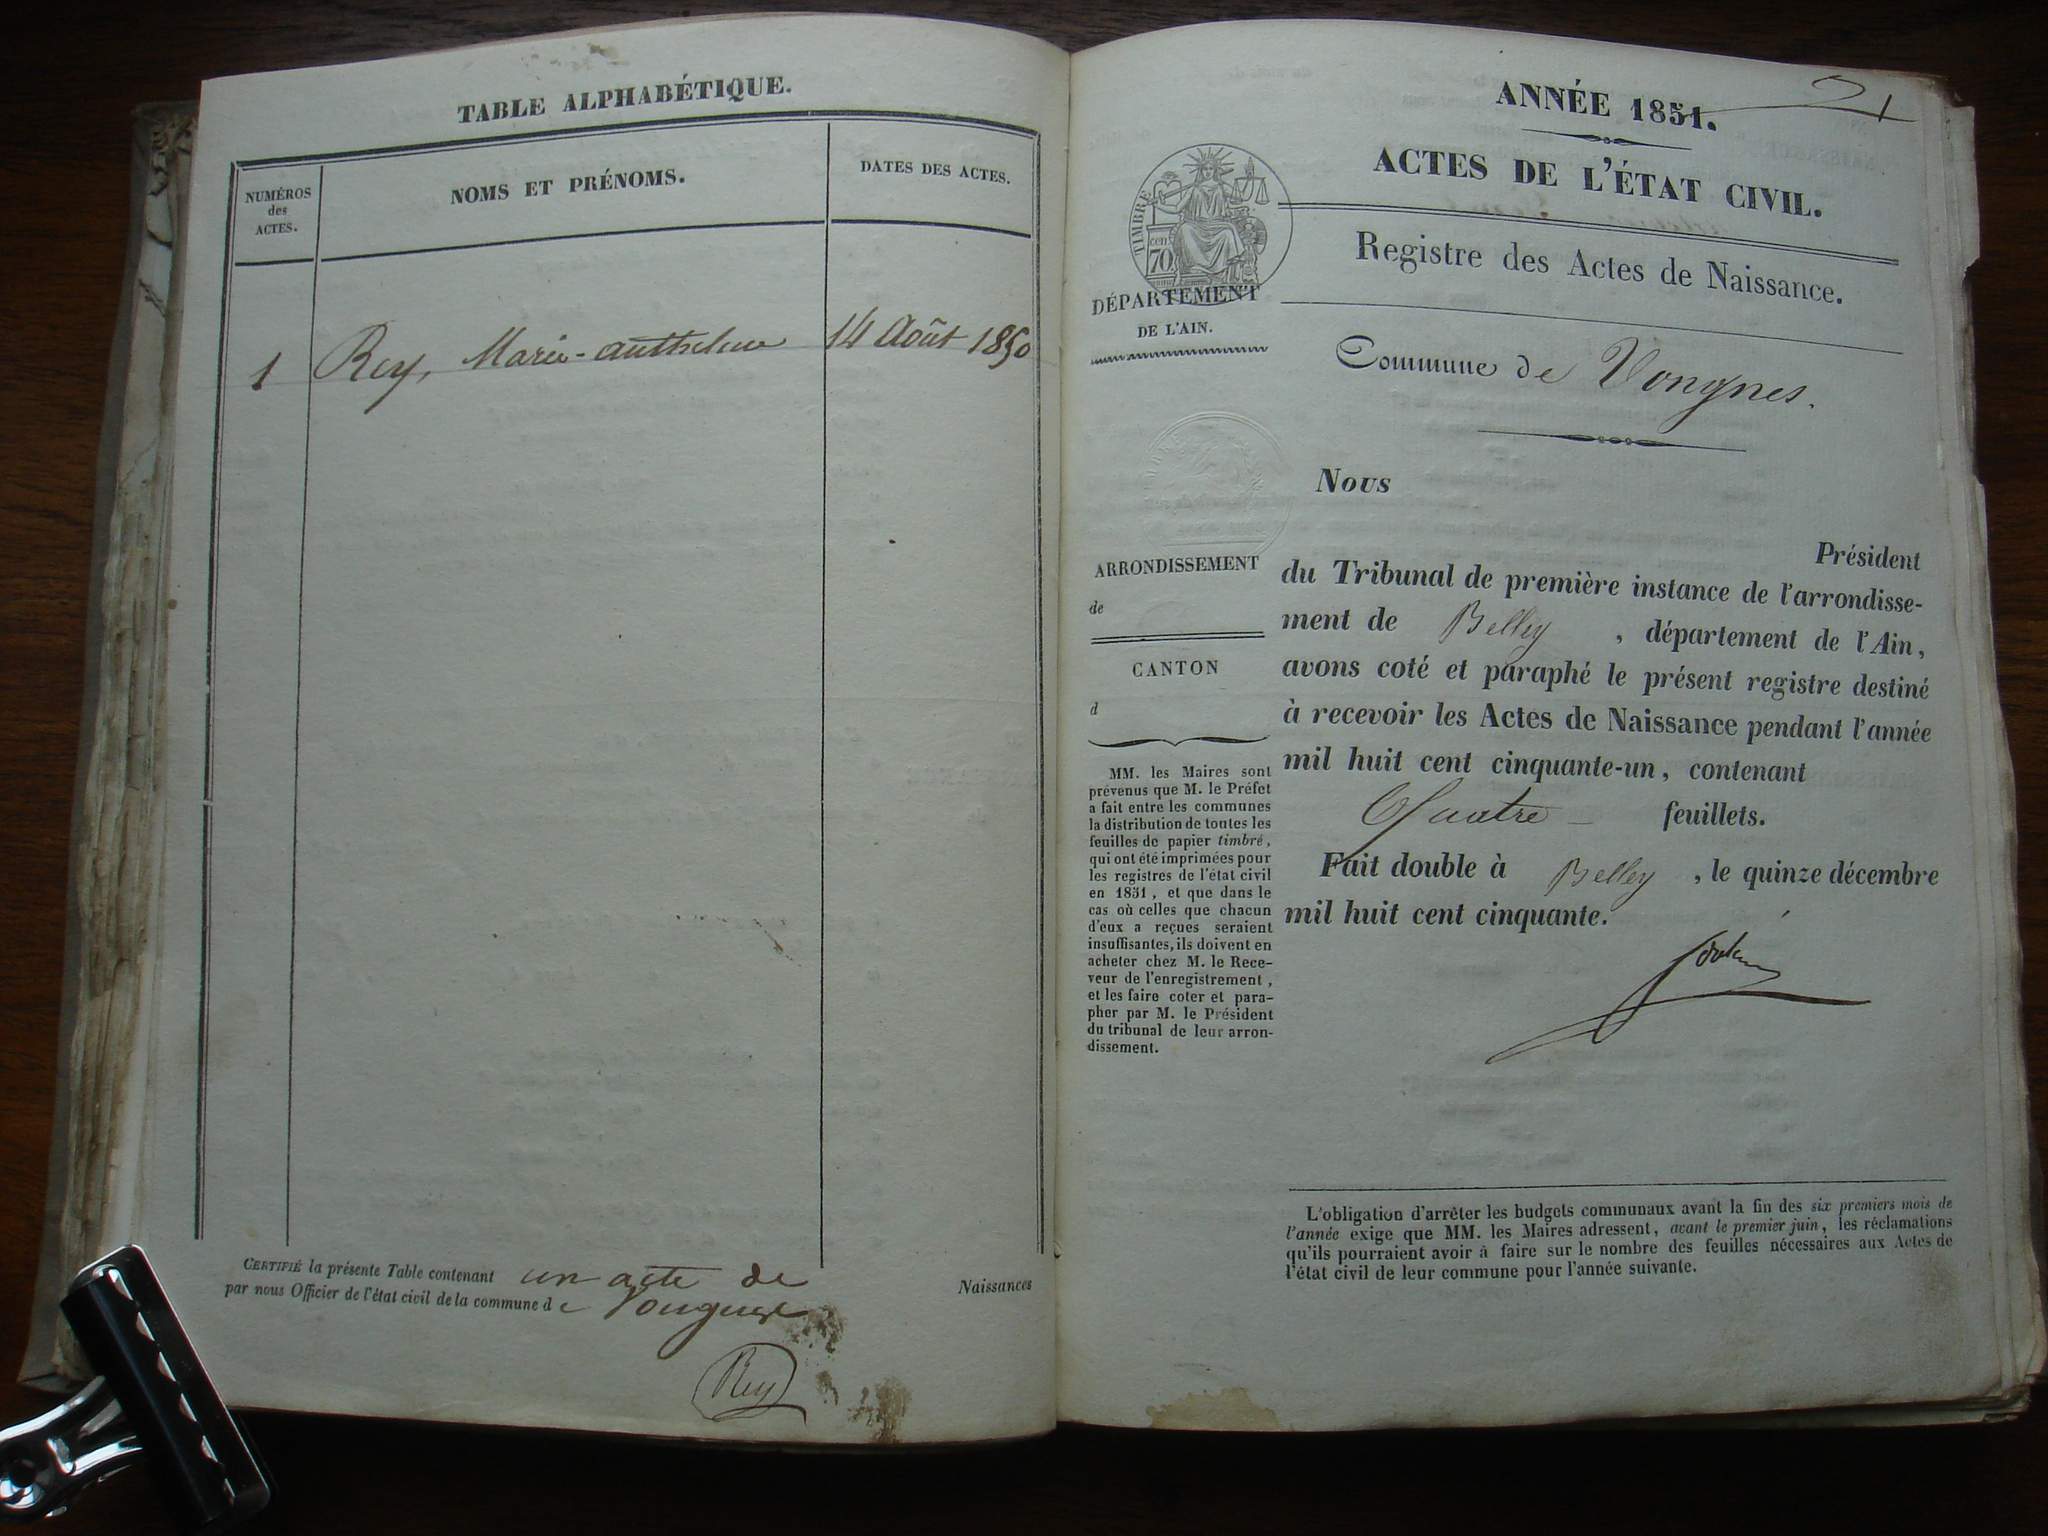 TABLE ALPHABÉTIQUE.
NUMÉROS
des
ACTES.
NOMS ET PRÉNOMS.
DATES DES ACTES.
1 Rey, Marie-anthelme 14 Août 1850
CERTIFIÉ la présente Table contenant un acte de Naissances
par nous Officier de l'état civil de la commune de Vongnes
Rey
21
ANNÉE 1851.
ACTES DE L'ÉTAT CIVIL.
Registre des Actes de Naissance.
TIMBRE
cen
70
DÉPARTEMENT
DE L'AIN.
Commune de Vongnes.
ARRONDISSEMENT
de
CANTON
d
MM. les Maires sont
prévenus que M. le Préfet
a fait entre les communes
la distribution de toutes les
feuilles de papier timbré,
qui ont été imprimées pour
les registres de l'état civil
en 1851, et que dans le
cas où celles que chacun
d'eux a reçues seraient
insuffisantes, ils doivent en
acheter chez M. le Rece-
veur de l'enregistrement,
et les faire coter et para-
pher par M. le Président
du tribunal de leur arron-
dissement.
Nous
Président
du Tribunal de première instance de l'arrondisse-
ment de Belley, département de l'Ain,
avons coté et paraphé le présent registre destiné
à recevoir les Actes de Naissance pendant l'année
mil huit cent cinquante-un, contenant
Quatre feuillets.
Fait double à Belley, le quinze décembre
mil huit cent cinquante.
L'obligation d'arrêter les budgets communaux avant la fin des six premiers mois de
l'année exige que MM. les Maires adressent, avant le premier juin, les réclamations
qu'ils pourraient avoir à faire sur le nombre des feuilles nécessaires aux Actes de
l'état civil de leur commune pour l'année suivante.